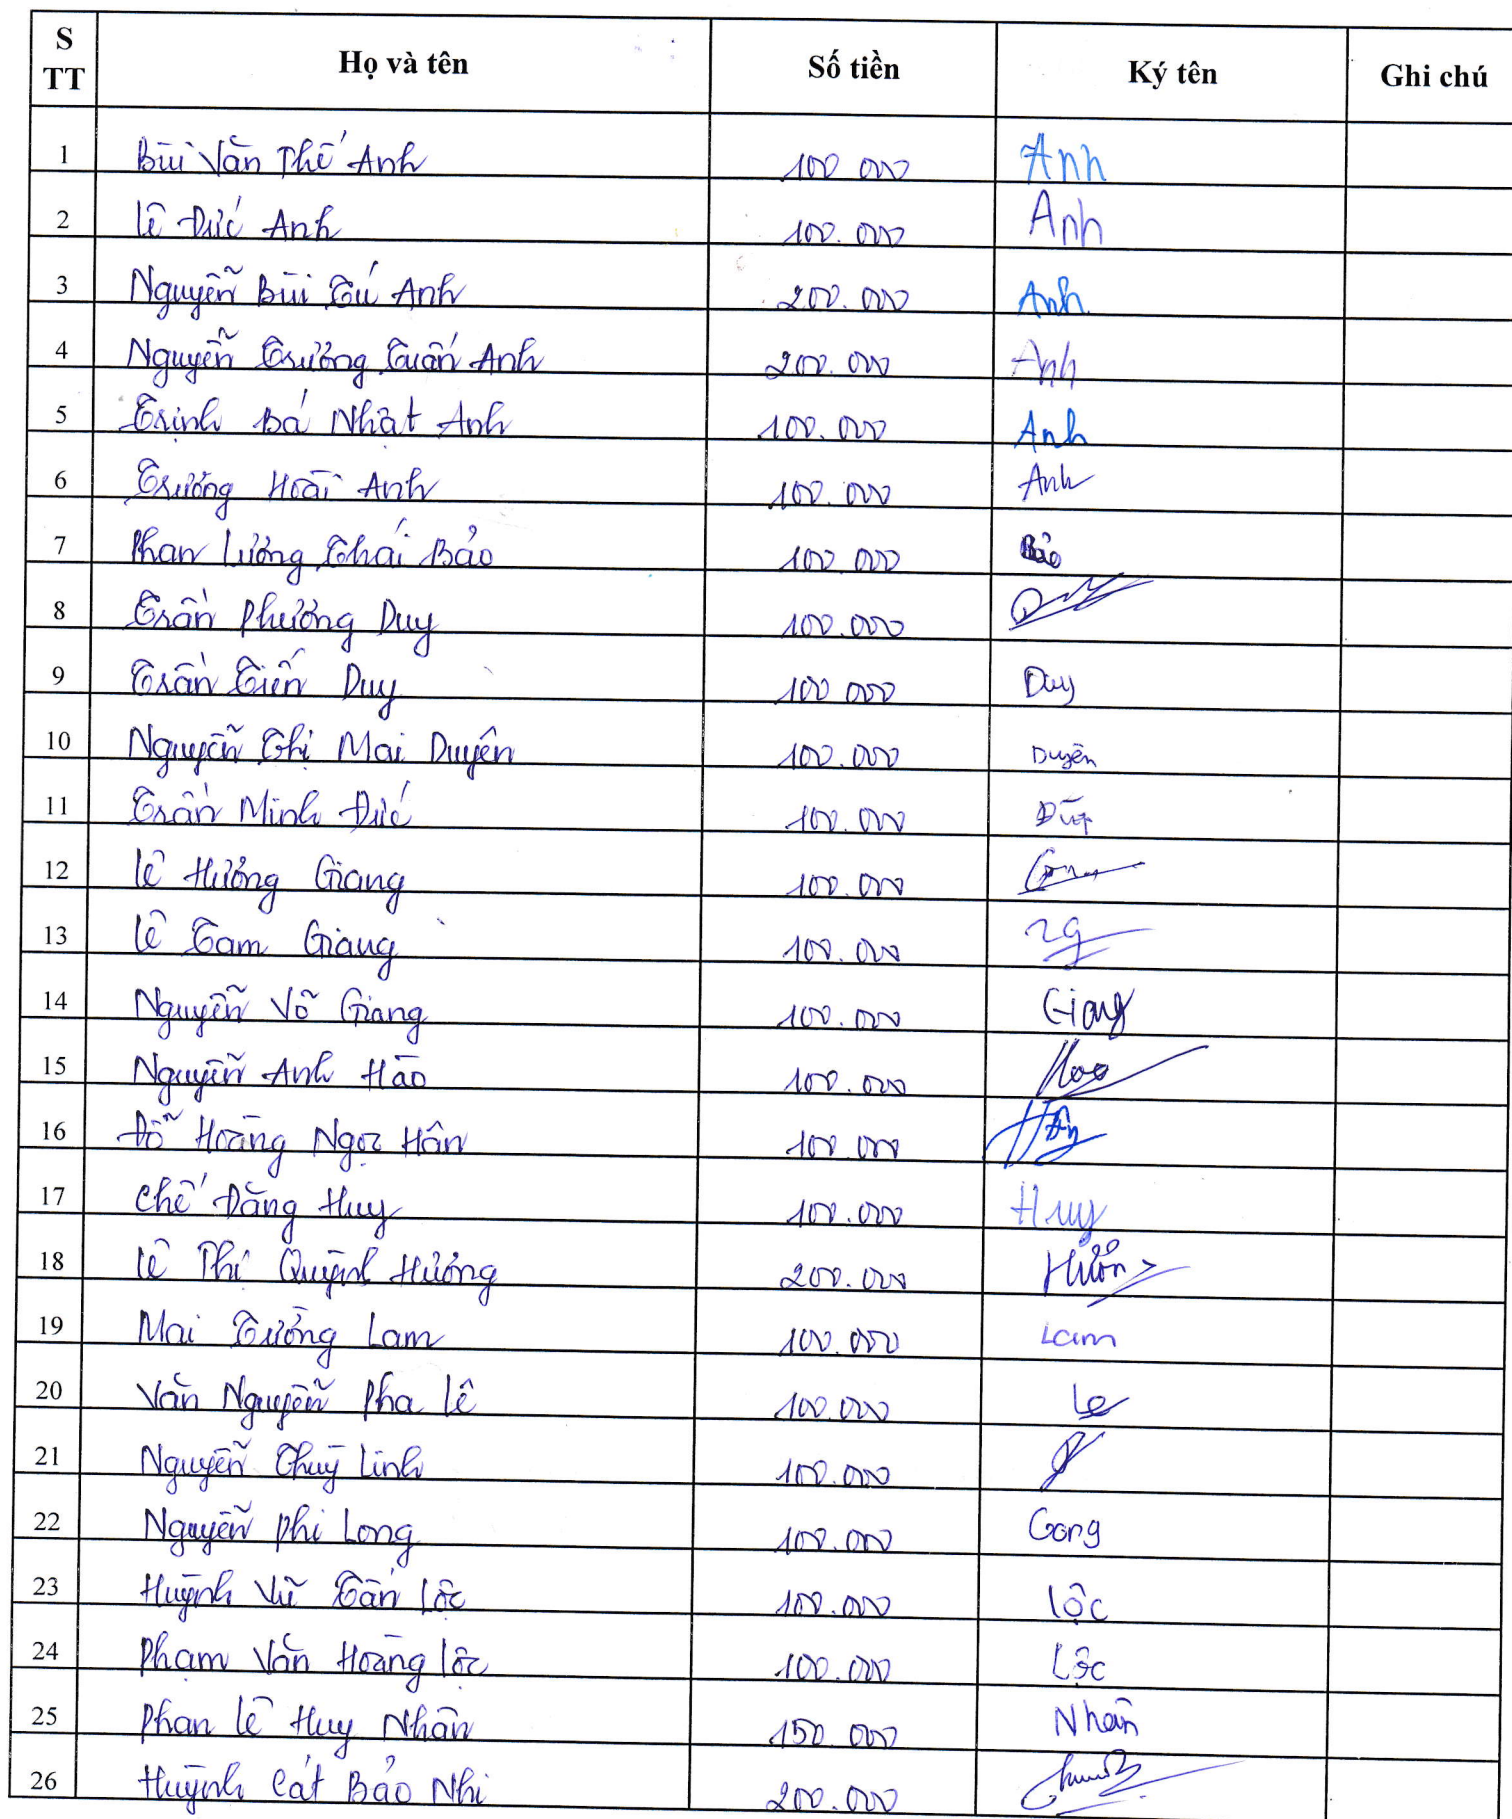 S TT Họ và tên Số tiền Ký tên Ghi chú
1 Bùi Văn Thế Anh 100 000 Anh
2 Lê Đức Anh 100.000 Anh
3 Nguyễn Bùi Tú Anh 200.000 Anh
4 Nguyễn Trường Tuấn Anh 200.000 Anh
5 Trịnh Bá Nhật Anh 100.000 Anh
6 Trương Hoài Anh 100.000 Anh
7 Phan Lương Thái Bảo 100 000 Bảo
8 Trần Phương Duy 100.000
9 Trần Tiến Duy 100 000 Duy
10 Nguyễn Thị Mai Duyên 100.000 Duyên
11 Trần Minh Đức 100.000 Đức
12 Lê Hương Giang 100.000
13 Lê Tam Giang 100.000
14 Nguyễn Võ Giang 100.000 Giang
15 Nguyễn Anh Hào 100.000 Hao
16 Đỗ Hoàng Ngọc Hân 100.000 Hân
17 Chế Đăng Huy 100.000 Huy
18 Lê Thị Quỳnh Hương 200.000 Hương
19 Mai Tường Lam 100.000 Lam
20 Văn Nguyễn Pha Lê 100.000 Le
21 Nguyễn Thuỳ Linh 100.000
22 Nguyễn Phi Long 100.000 Long
23 Huỳnh Vũ Tấn Lộc 100.000 Lộc
24 Phạm Văn Hoàng Lộc 100.000 Lộc
25 Phan Lê Huy Nhân 150 000 Nhân
26 Huỳnh Cát Bảo Nhi 200.000